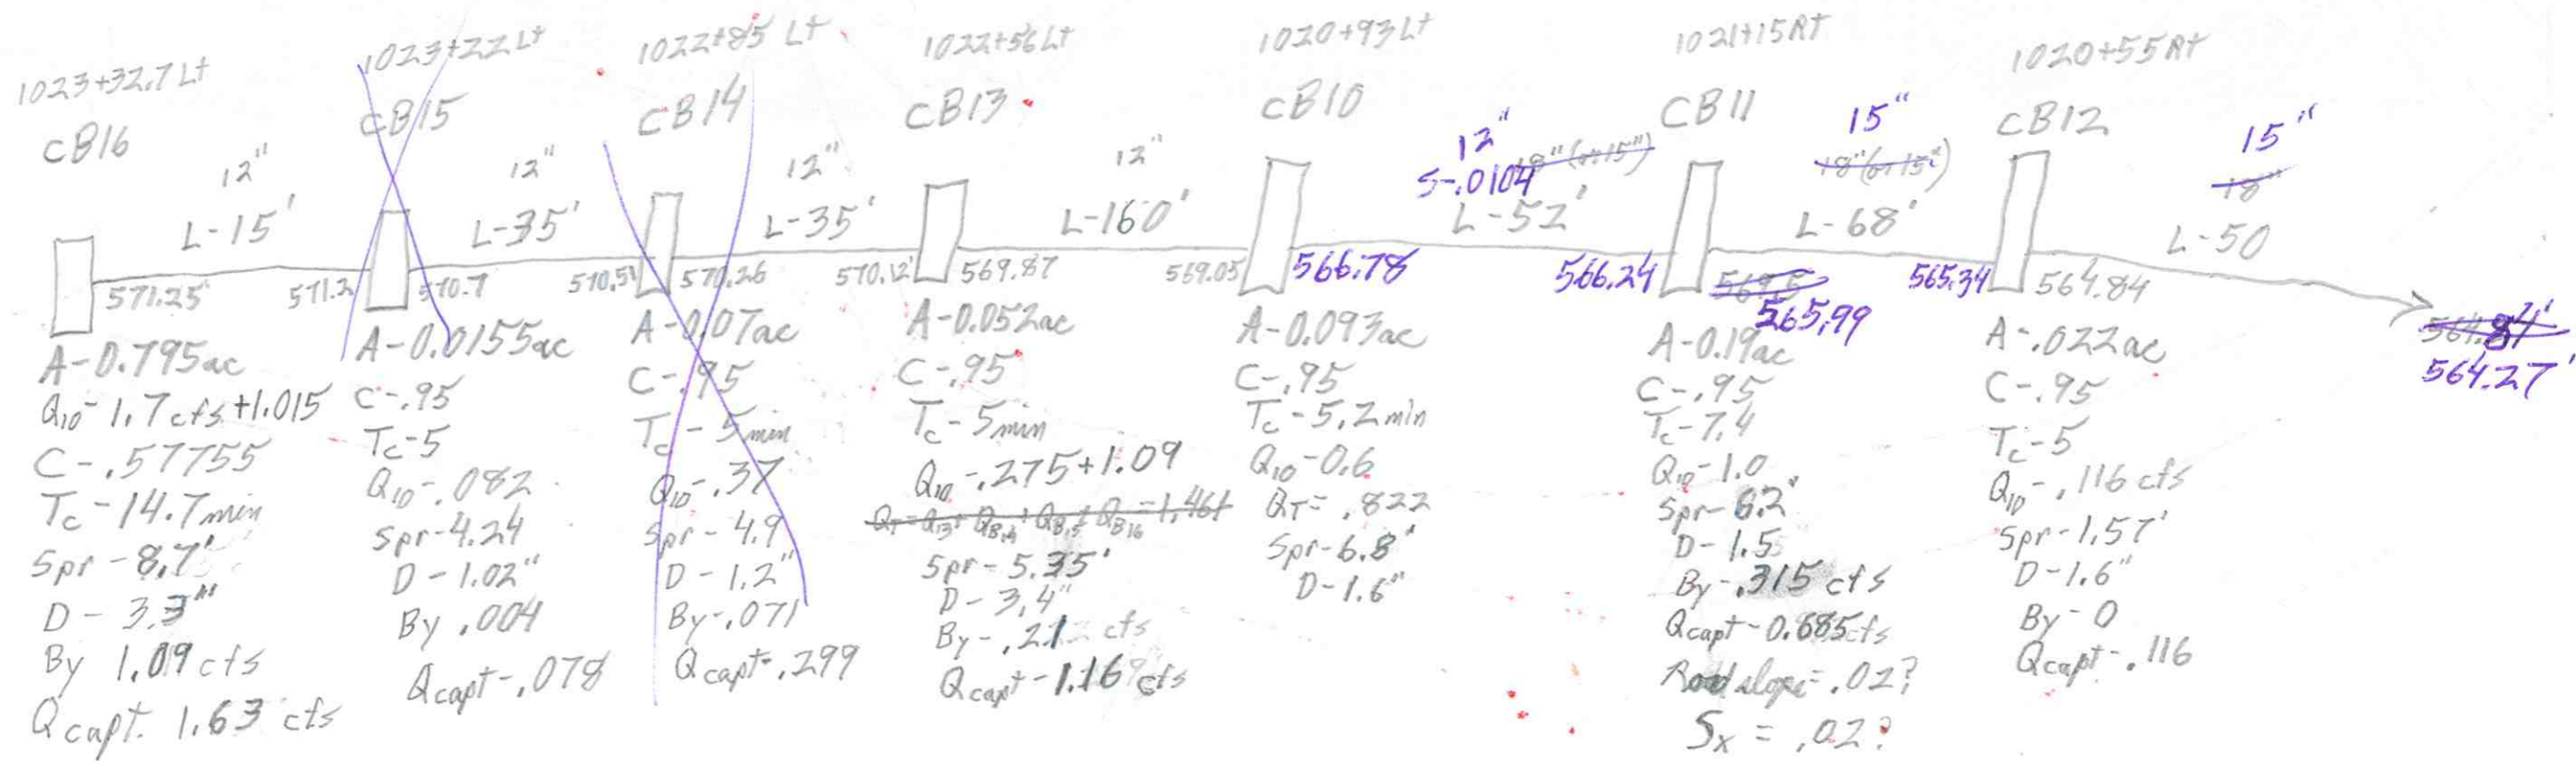 1023+32.7 Lt
CB16
12"
L-15'
571.25'
A-0.795ac
Q10-1.7cfs+1.015
C-.57755
Tc-14.7min
Spr-8.7'
D-3.3"
By 1.09 cfs
Qcapt. 1.63 cfs
1023+22Lt
CB15
12"
L-35'
571.2
570.7
A-0.0155ac
C-.95
Tc-5
Q10-.082
Spr-4.24
D-1.02"
By .004
Qcapt-.078
1022+85 Lt
CB14
12"
L-35'
570.51
570.26
A-0.07ac
C-.95
Tc-5min
Q10-.37
Spr-4.9
D-1.2"
By-.071
Qcapt-.299
1022+56Lt
CB13
12"
L-160'
570.12'
569.87
A-0.052ac
C-.95
Tc-5min
Q10-.275+1.09
QT=Q13+QB14+QB15+QB16=1.461
Spr-5.35'
D-3.4"
By-.21 cfs
Qcapt-1.16 cfs
1020+93Lt
CB10
12"
18"(or 15")
S-.0104
L-52'
569.05
566.78
A-0.093ac
C-.95
Tc-5.2min
Q10-0.6
QT=.822
Spr-6.8'
D-1.6"
1021+15Rt
CB11
15"
18"(or 15")
L-68'
566.24
565.99
A-0.19ac
C-.95
Tc-7.4
Q10-1.0
Spr-8.2'
D-1.5
By-.315 cfs
Qcapt-0.685cfs
Road slope=.02?
Sx=.02?
1020+55Rt
CB12
15"
18"
L-50
565.34
564.84
A-.022ac
C-.95
Tc-5
Q10-.116 cfs
Spr-1.57'
D-1.6"
By-0
Qcapt-.116
564.27'